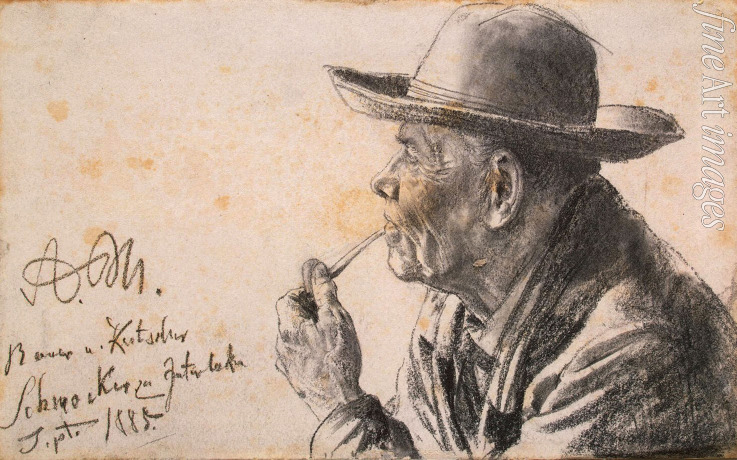 A. M.
Bauer u. Kutscher
Schmocker zu Interlaken
Sept. 1885.
fine Art images